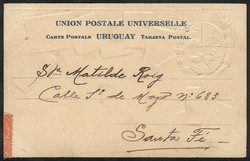 UNION POSTALE UNIVERSELLE
CARTE POSTALE URUGUAY TARJETA POSTAL.
Sta Matilde Roig
Calle 1º de Mayo Nº 683
Santa Fé